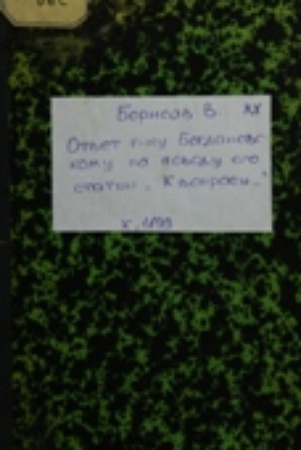 Борисов В. XX
Ответ г-ну Богдановс
кому по поводу его
статьи „К вопросу..."
К, 1899